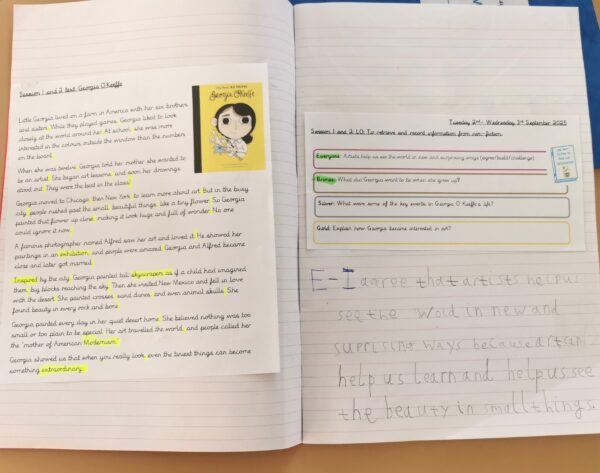 Session 1 and 2 text: Georgia O'Keeffe
Georgia O'Keeffe
Little Georgia lived on a farm in America with her six brothers
and sisters. While they played games, Georgia liked to look
closely at the world around her. At school, she was more
interested in the colours outside the window than the numbers
on the board.
When she was twelve, Georgia told her mother she wanted to
be an artist. She began art lessons, and soon her drawings
stood out. They were the best in the class!
Georgia moved to Chicago, then New York, to learn more about art. But in the busy
city, people rushed past the small, beautiful things, like a tiny flower. So Georgia
painted that flower up close, making it look huge and full of wonder. No one
could ignore it now.
A famous photographer named Alfred saw her art and loved it. He showed her
paintings in an exhibition, and people were amazed. Georgia and Alfred became
close and later got married.
Inspired by the city, Georgia painted tall skyscrapers as if a child had imagined
them, big blocks reaching the sky. Then she visited New Mexico and fell in love
with the desert. She painted crosses, sand dunes, and even animal skulls. She
found beauty in every rock and bone.
Georgia painted every day in her quiet desert home. She believed nothing was too
small or too plain to be special. Her art travelled the world, and people called her
the "mother of American Modernism."
Georgia showed us that when you really look, even the tiniest things can become
something extraordinary.
Tuesday 2nd - Wednesday 3rd September 2025
Session 1 and 2 LO: To retrieve and record information from non-fiction.
Everyone: Artists help us see the world in new and surprising ways (agree/build/challenge)
Bronze: What did Georgia want to be when she grew up?
Silver: What were some of the key events in Georgia O'Keeffe's life?
Gold: Explain how Georgia became interested in art?
E-I agree that artists help us
see the word in new and
suprising ways because art can
help us learn and help us see
the beauty in small things.